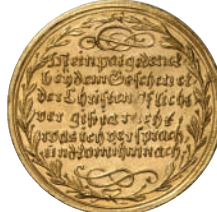 Mein pat gedenck
bey dem Geschenck
der Christen Pflicht
vergiß ia nicht
was ich versprach
und kom ihm nach